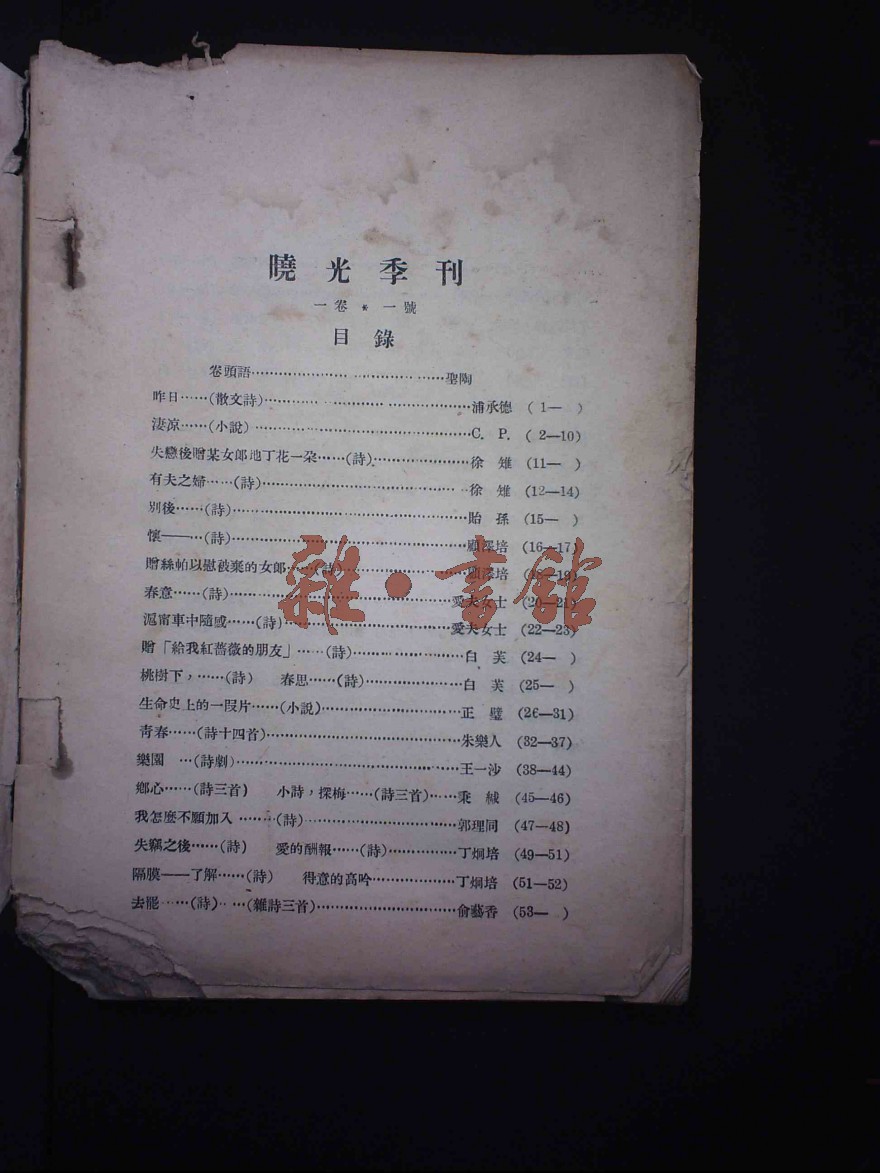 曉光季刊
一卷 * 一號
目錄
卷頭語……………………聖陶
昨日……(散文詩)……………………浦承德 (1— )
淒凉……(小說)……………………C. P. (2—10)
失戀後贈某女郎地丁花一朶……(詩)……………徐雉 (11— )
有夫之婦……(詩)……………………徐雉 (12—14)
別後……(詩)……………………貽孫 (15— )
懷——…(詩)……………………顧澤培 (16—17)
贈絲帕以慰被棄的女郎……(詩)……………顧澤培 (18—19)
春意……(詩)……………………愛夫女士 (20—21)
滬甯車中隨感……(詩)……………………愛夫女士 (22—23)
贈「給我紅薔薇的朋友」……(詩)……………白芙 (24— )
桃樹下,……(詩) 春思……(詩)……………白芙 (25— )
生命史上的一段片……(小說)……………………正璧 (26—31)
靑春……(詩十四首)……………………朱樂人 (32—37)
樂園 …(詩劇)……………………王一沙 (38—44)
鄉心……(詩三首) 小詩,探梅……(詩三首)……秉絨 (45—46)
我怎麽不願加入………(詩)……………………郭理同 (47—48)
失竊之後……(詩) 愛的酬報……(詩)……………丁烱培 (49—51)
隔膜——了解……(詩) 得意的高吟……………丁烱培 (51—52)
去罷……(詩)……(雜詩三首)……………………俞藝香 (53— )
雜·書館